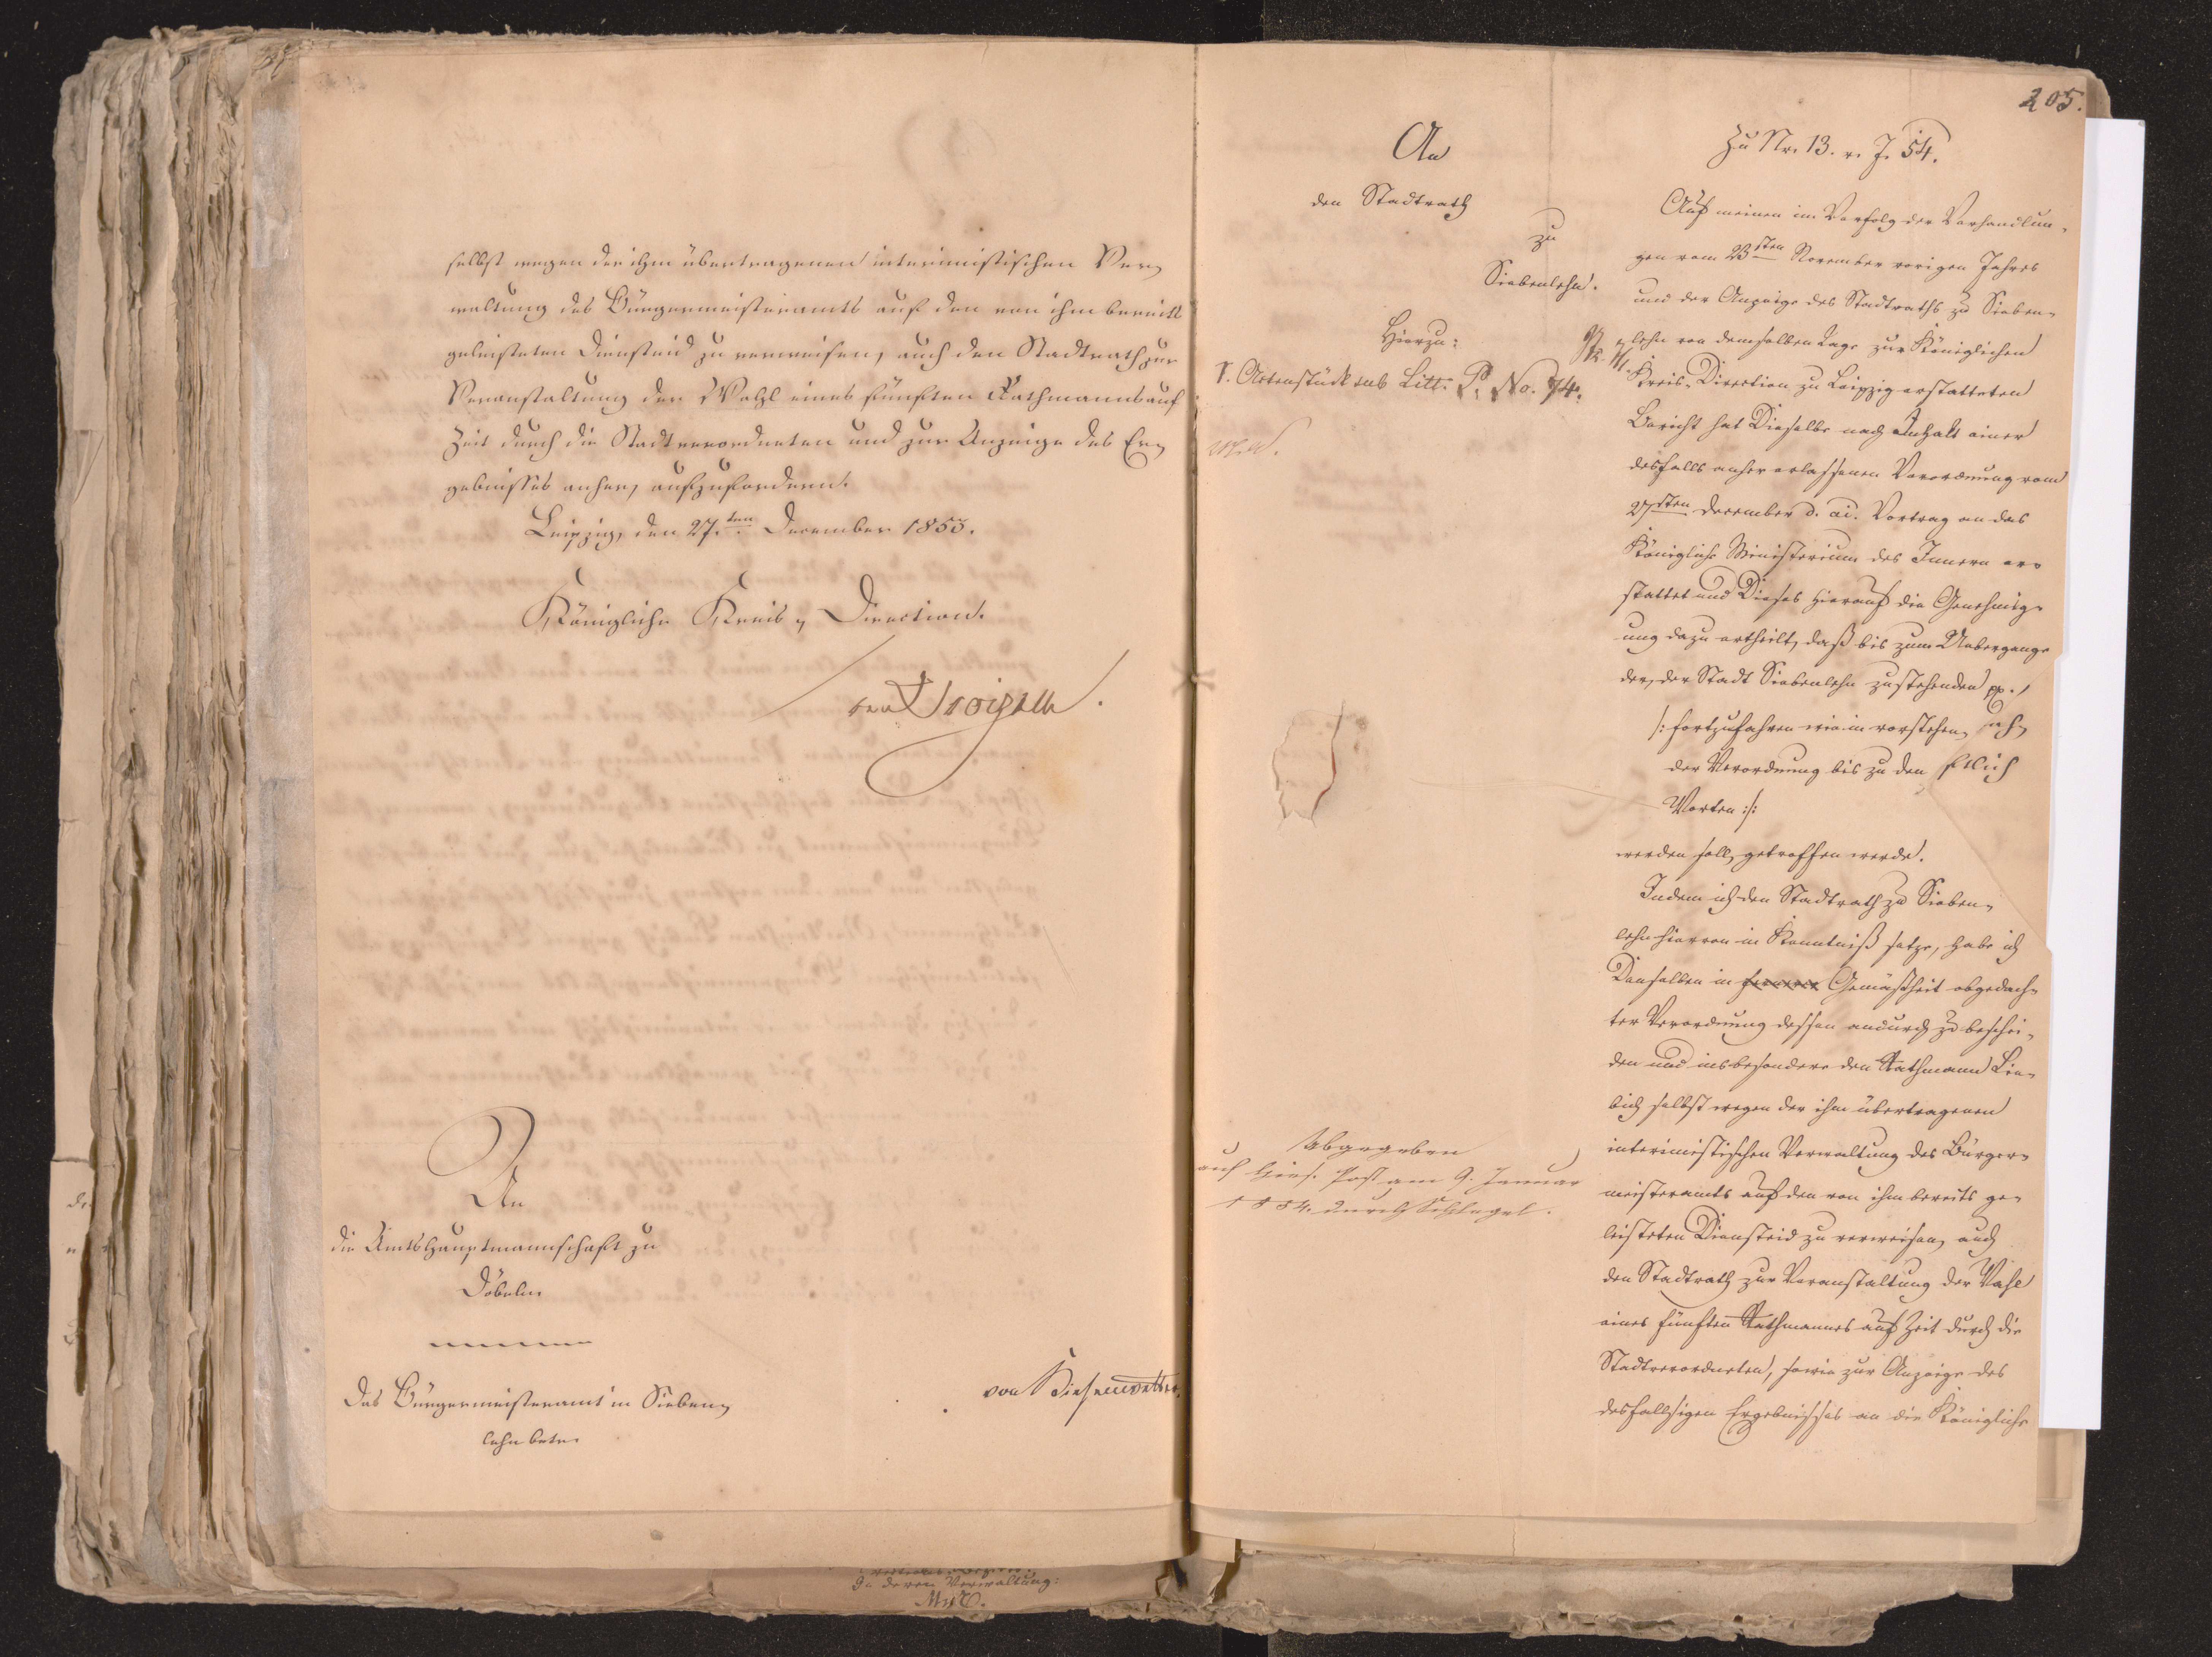 selbst wegen der ihm übertragenen interimistischen Ver-
waltung des Bürgermeisteramts auf den von ihm bereits
geleisteten Diensteid zu verweisen, auch den Stadtrath zur
Veranstaltung der Wahl eines fünften Rathmanns auf
Zeit durch die Stadtverordneten und zur Anzeige des Er-
gebnisses anher, aufzufordern.
Leipzig, den 27.ten December 1853.
Königliche Kreis-Direction.
von
An
die Amtshauptmannschaft zu
Döbeln
das Bürgermeisteramt in Sieben-
lehn betr.
von Kiesenwetter.
In deren Verwaltung:
205.
An
den Stadtrath
zu
Siebenlehn.
Hierzu:
1. Actenstück sub Litt. P. No. 74.
Abgegeben
auf hies. Post am 9. Januar
1854. durch Schlegel.
Zu Nr. 13. v. J. 54.
Auf meinen im Verfolg der Verhandlun-
gen vom 23sten November vorigen Jahres
und der Anzeige des Stadtraths zu Sieben-
lehn von demselben Tage zur Königlichen
Kreis-Direction zu Leipzig erstatteten
Bericht hat Dieselbe nach Inhalt einer
desfalls anher erlassenen Verordnung vom
27sten December d. ai. Vortrag an das
Königliche Ministerium des Innern er-
stattet und Dieses hierauf die Genehmig-
ung dazu ertheilt, daß bis zum Uebergange
der, der Stadt Siebenlehn zustehenden pp.
/: fortzufahren wie in vorstehen-
der Verordnung bis zu den
Worten :/:
werden soll, getroffen werde.
Indem ich den Stadtrath zu Sieben-
lehn hiervon in Kenntniß setze, habe ich
Denselben in Gemäßheit obgedach-
ter Verordnung dessen andurch zu beschei-
den und insbesondere den Rathmann Lie-
bich selbst wegen der ihm übertragenen
interimistischen Verwaltung des Bürger-
meisteramts auf den von ihm bereits ge-
leisteten Diensteid zu verweisen, auch
den Stadtrath zur Veranstaltung der Wahl
eines fünften Rathmannes auf Zeit durch die
Stadtverordneten, sowie zur Anzeige des
desfallsigen Ergebnisses an die Königliche